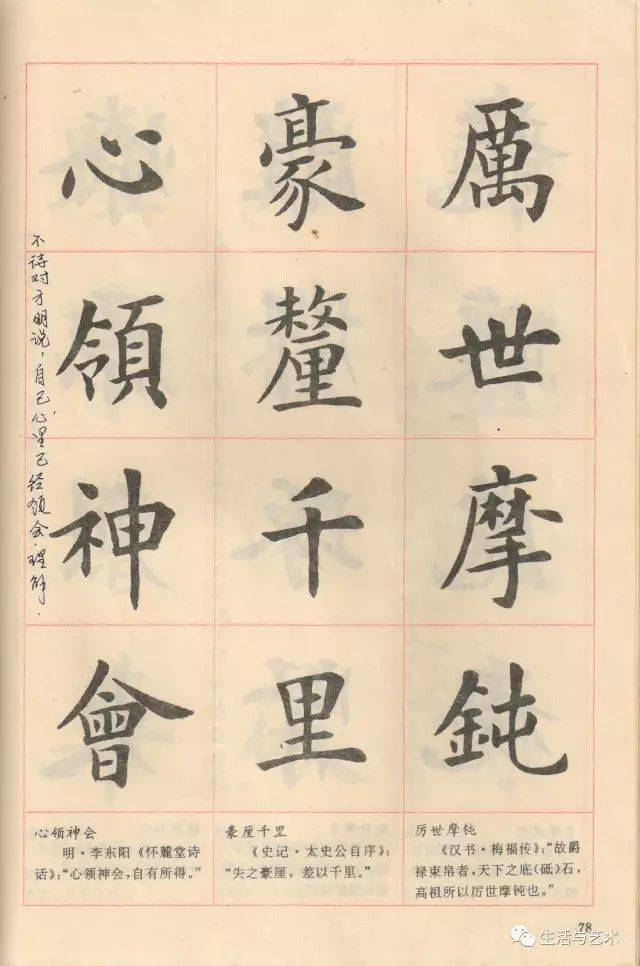 厲世摩鈍
豪釐千里
心領神會
不待对方明说，自己心里已经领会、理解．
心领神会
明·李东阳《怀麓堂诗
话》：“心领神会，自有所得。”
豪厘千里
《史记·太史公自序》：
“失之豪厘，差以千里。”
厉世摩钝
《汉书·梅福传》：“故爵
禄束帛者，天下之底(砥)石，
高祖所以厉世摩钝也。”
78
生活与艺术